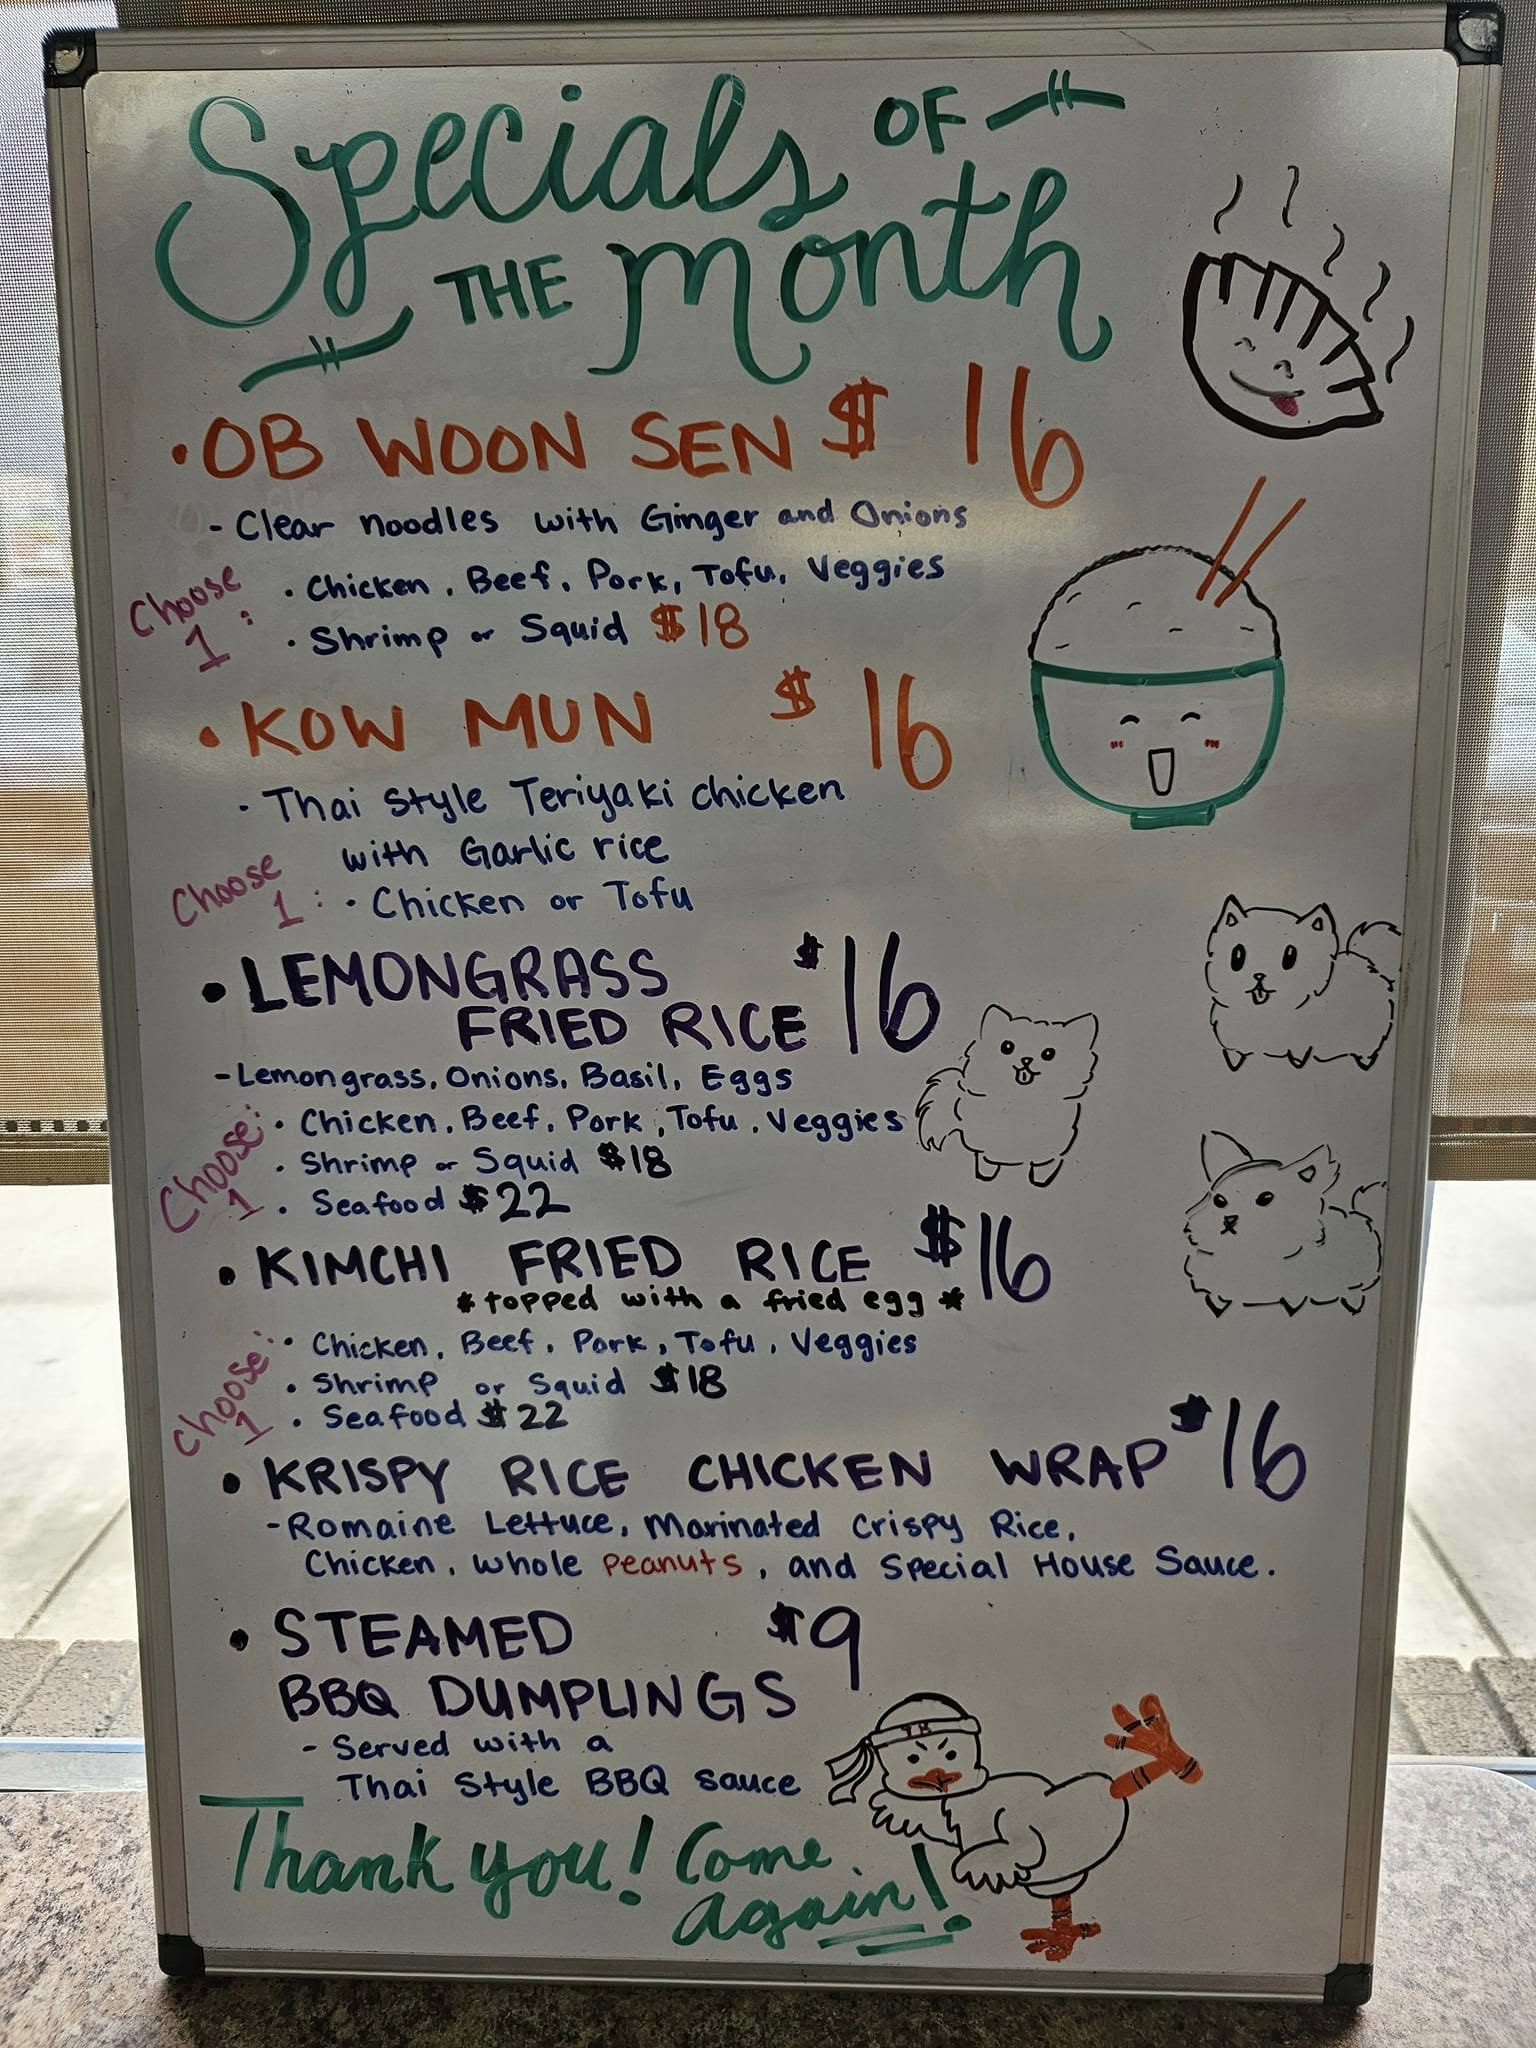 Specials OF
THE Month
• OB WOON SEN $16
- Clear noodles with Ginger and Onions
Choose 1:
• Chicken, Beef, Pork, Tofu, Veggies
• Shrimp or Squid $18
• KOW MUN $16
• Thai Style Teriyaki chicken
with Garlic rice
Choose 1:
• Chicken or Tofu
• LEMONGRASS
FRIED RICE $16
- Lemongrass, Onions, Basil, Eggs
Choose: 1
• Chicken, Beef, Pork, Tofu, Veggies
• Shrimp or Squid $18
• Seafood $22
• KIMCHI FRIED RICE $16
*topped with a fried egg*
Choose: 1
• Chicken, Beef, Pork, Tofu, Veggies
• Shrimp or Squid $18
• Seafood $22
• KRISPY RICE CHICKEN WRAP $16
- Romaine Lettuce, Marinated Crispy Rice,
Chicken, whole peanuts, and Special House Sauce.
• STEAMED $9
BBQ DUMPLINGS
- Served with a
Thai Style BBQ sauce
Thank you! Come
again!